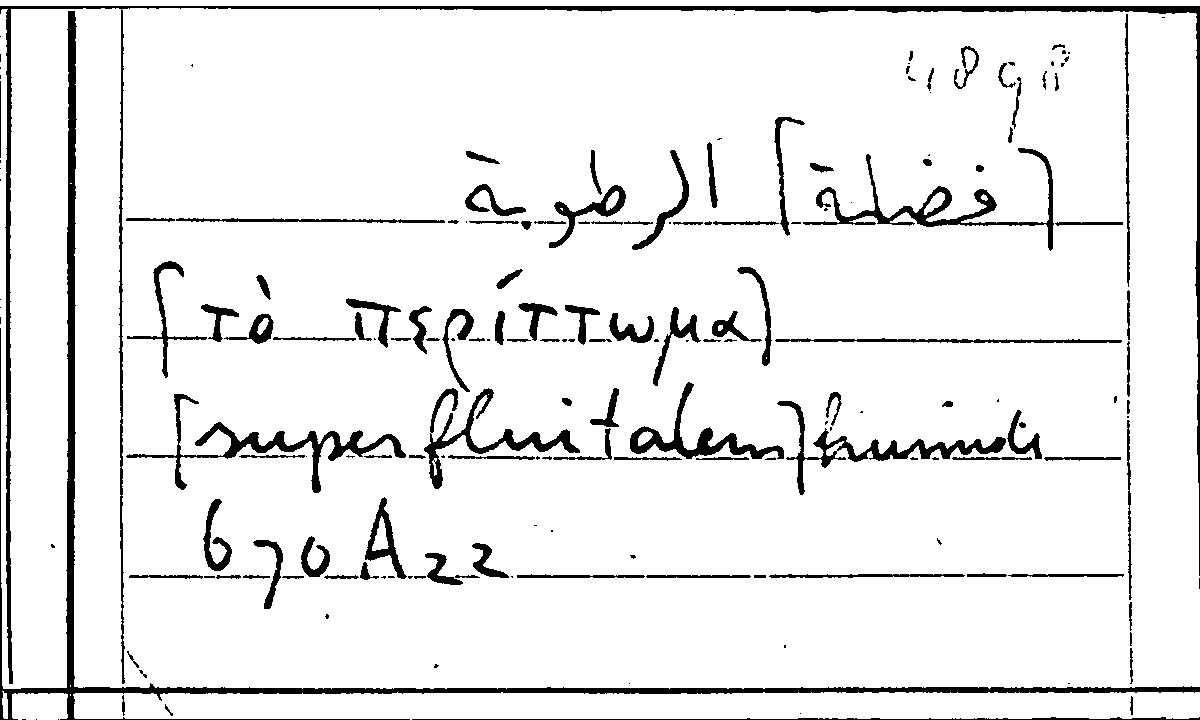 4898
[فضلة] الرطوبة
[τὸ περίττωμα]
[superfluitatem] humidi
670A22